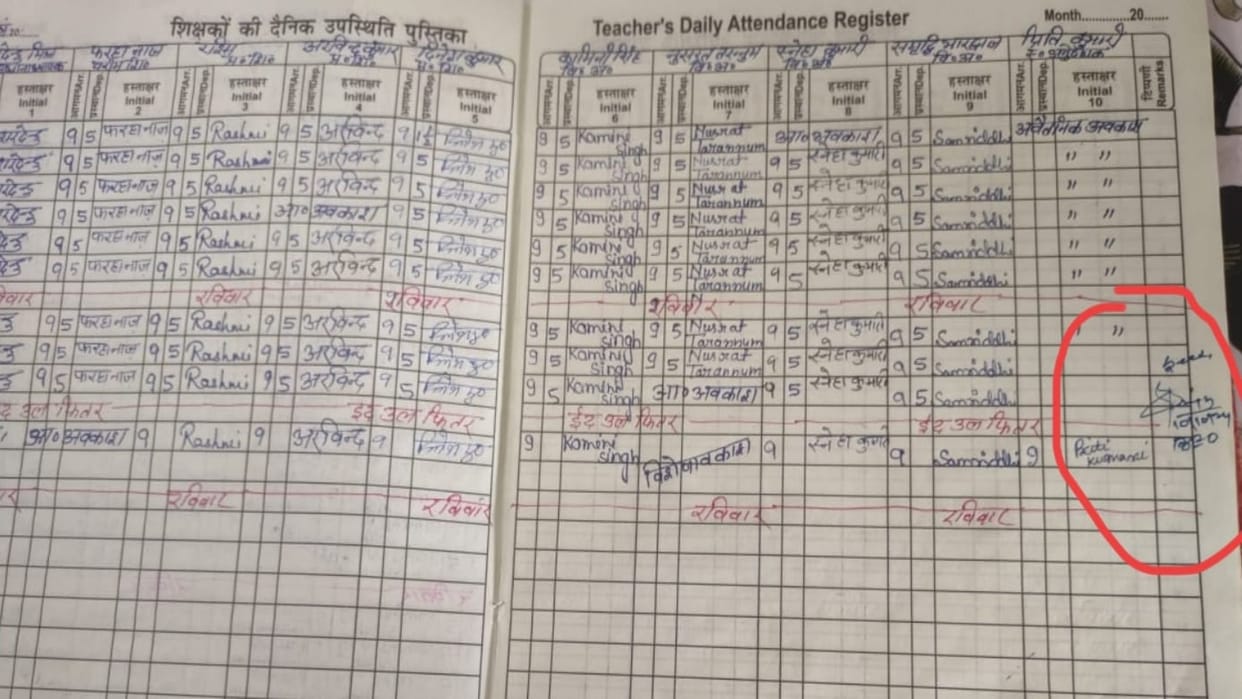 शिक्षकों की दैनिक उपस्थिति पुस्तिका
Teacher's Daily Attendance Register
Month.............20.......
फरहा नाज रश्मि अरविन्द कुमार दिनेश कुमार कामिनी सिंह नुसरत तरन्नुम स्नेहा कुमारी प्रिति कुमारी
हस्ताक्षर Initial 1 आगमन/Arr. प्रस्थान/Dep. हस्ताक्षर Initial 2 आगमन/Arr. प्रस्थान/Dep. हस्ताक्षर Initial 3 आगमन/Arr. प्रस्थान/Dep. हस्ताक्षर Initial 4 आगमन/Arr. प्रस्थान/Dep. हस्ताक्षर Initial 5
आगमन/Arr. प्रस्थान/Dep. हस्ताक्षर Initial 6 आगमन/Arr. प्रस्थान/Dep. हस्ताक्षर Initial 7 आगमन/Arr. प्रस्थान/Dep. हस्ताक्षर Initial 8 आगमन/Arr. प्रस्थान/Dep. हस्ताक्षर Initial 9 आगमन/Arr. प्रस्थान/Dep. हस्ताक्षर Initial 10 टिप्पणी Remarks
9 5 फरहा नाज 9 5 Rashmi 9 5 अरविन्द 9 9 5 Kamini Singh 9 5 Nusrat Tarannum आ० अवकाश 9 5 Samriddhi अवैतनिक अवकाश
9 5 फरहा नाज 9 5 Rashmi 9 5 अरविन्द 9 5 9 5 Kamini Singh 9 5 Nusrat Tarannum 9 5 स्नेहा कुमारी 9 5 Samriddhi " "
9 5 फरहा नाज 9 5 Rashmi 9 5 अरविन्द 9 5 9 5 Kamini Singh 9 5 Nusrat Tarannum 9 5 स्नेहा कुमारी 9 5 Samriddhi " "
9 5 फरहा नाज 9 5 Rashmi आ० अवकाश 9 5 9 5 Kamini Singh 9 5 Nusrat Tarannum 9 5 स्नेहा कुमारी 9 5 Samriddhi " "
9 5 फरहा नाज 9 5 Rashmi 9 5 अरविन्द 9 5 9 5 Kamini Singh 9 5 Nusrat Tarannum 9 5 स्नेहा कुमारी 9 5 Samriddhi " "
9 5 फरहा नाज 9 5 Rashmi 9 5 अरविन्द 9 5 9 5 Kamini Singh 9 5 Nusrat Tarannum 9 5 स्नेहा कुमारी 9 5 Samriddhi " "
रविवार रविवार रविवार रविवार रविवार
9 5 फरहा नाज 9 5 Rashmi 9 5 अरविन्द 9 5 9 5 Kamini Singh 9 5 Nusrat Tarannum 9 5 स्नेहा कुमारी 9 5 Samriddhi " "
9 5 फरहा नाज 9 5 Rashmi 9 5 अरविन्द 9 5 9 5 Kamini Singh 9 5 Nusrat Tarannum 9 5 स्नेहा कुमारी 9 5 Samriddhi
9 5 फरहा नाज 9 5 Rashmi 9 5 अरविन्द 9 5 9 5 Kamini Singh आ० अवकाश 9 5 स्नेहा कुमारी 9 5 Samriddhi
ईद उल फितर ईद उल फितर ईद उल फितर ईद उल फितर
आ० अवकाश 9 Rashmi 9 अरविन्द 9 9 Kamini Singh विशेषावकाश 9 स्नेहा कुमारी 9 Samriddhi 9 Priti kumari
रविवार रविवार रविवार रविवार